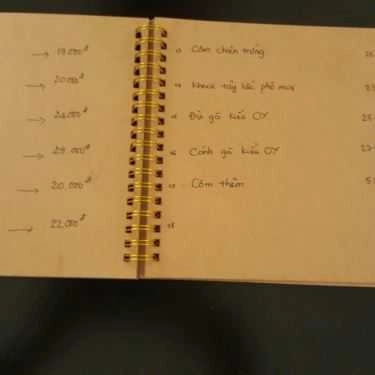 → 19.000đ
→ 20.000đ
→ 24.000đ
→ 29.000đ
→ 20.000đ
→ 22.000đ
Cơm chiên trứng
Khoai tây lắc phô mai
Đùi gà kiểu OY
Cánh gà kiểu OY
Cơm thêm